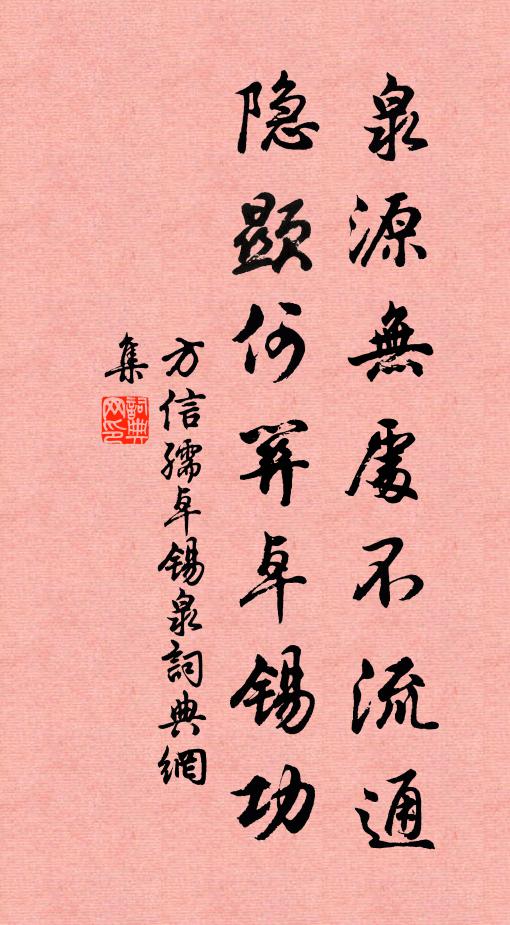 泉源無處不流通
隐顯何關卓锡功
方信孺卓锡泉詞典網
集
詞典网印